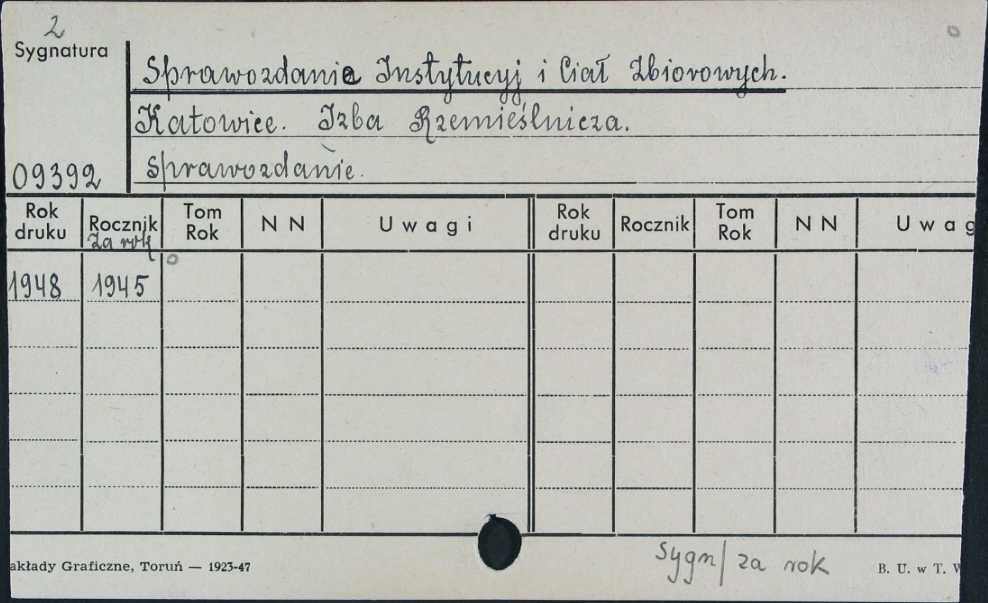 2
Sygnatura
Sprawozdanie Instytucyj i Ciał Zbiorowych.
Katowice. Izba Rzemieślnicza.
09392 Sprawozdanie.
Rok druku Rocznik za rok Tom Rok N N Uwagi Rok druku Rocznik Tom Rok N N Uwag
1948 1945
akłady Graficzne, Toruń — 1923-47
sygn/ za rok
B. U. w T. W